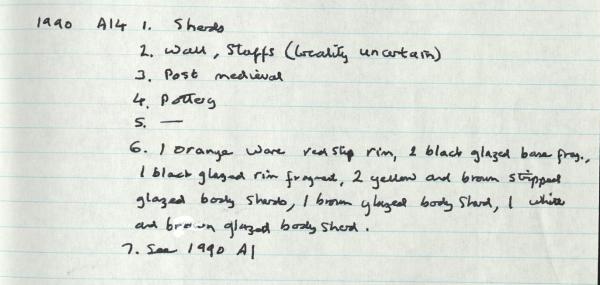 1990 A14 1. Sherds
2. Wall, Staffs (locality uncertain)
3. Post medieval
4. Pottery
5. —
6. 1 orange ware red slip rim, 2 black glazed base frag.,
1 black glazed rim fragment, 2 yellow and brown stripped
glazed body sherds, 1 brown glazed body sherd, 1 white
and brown glazed body sherd.
7. See 1990 A1